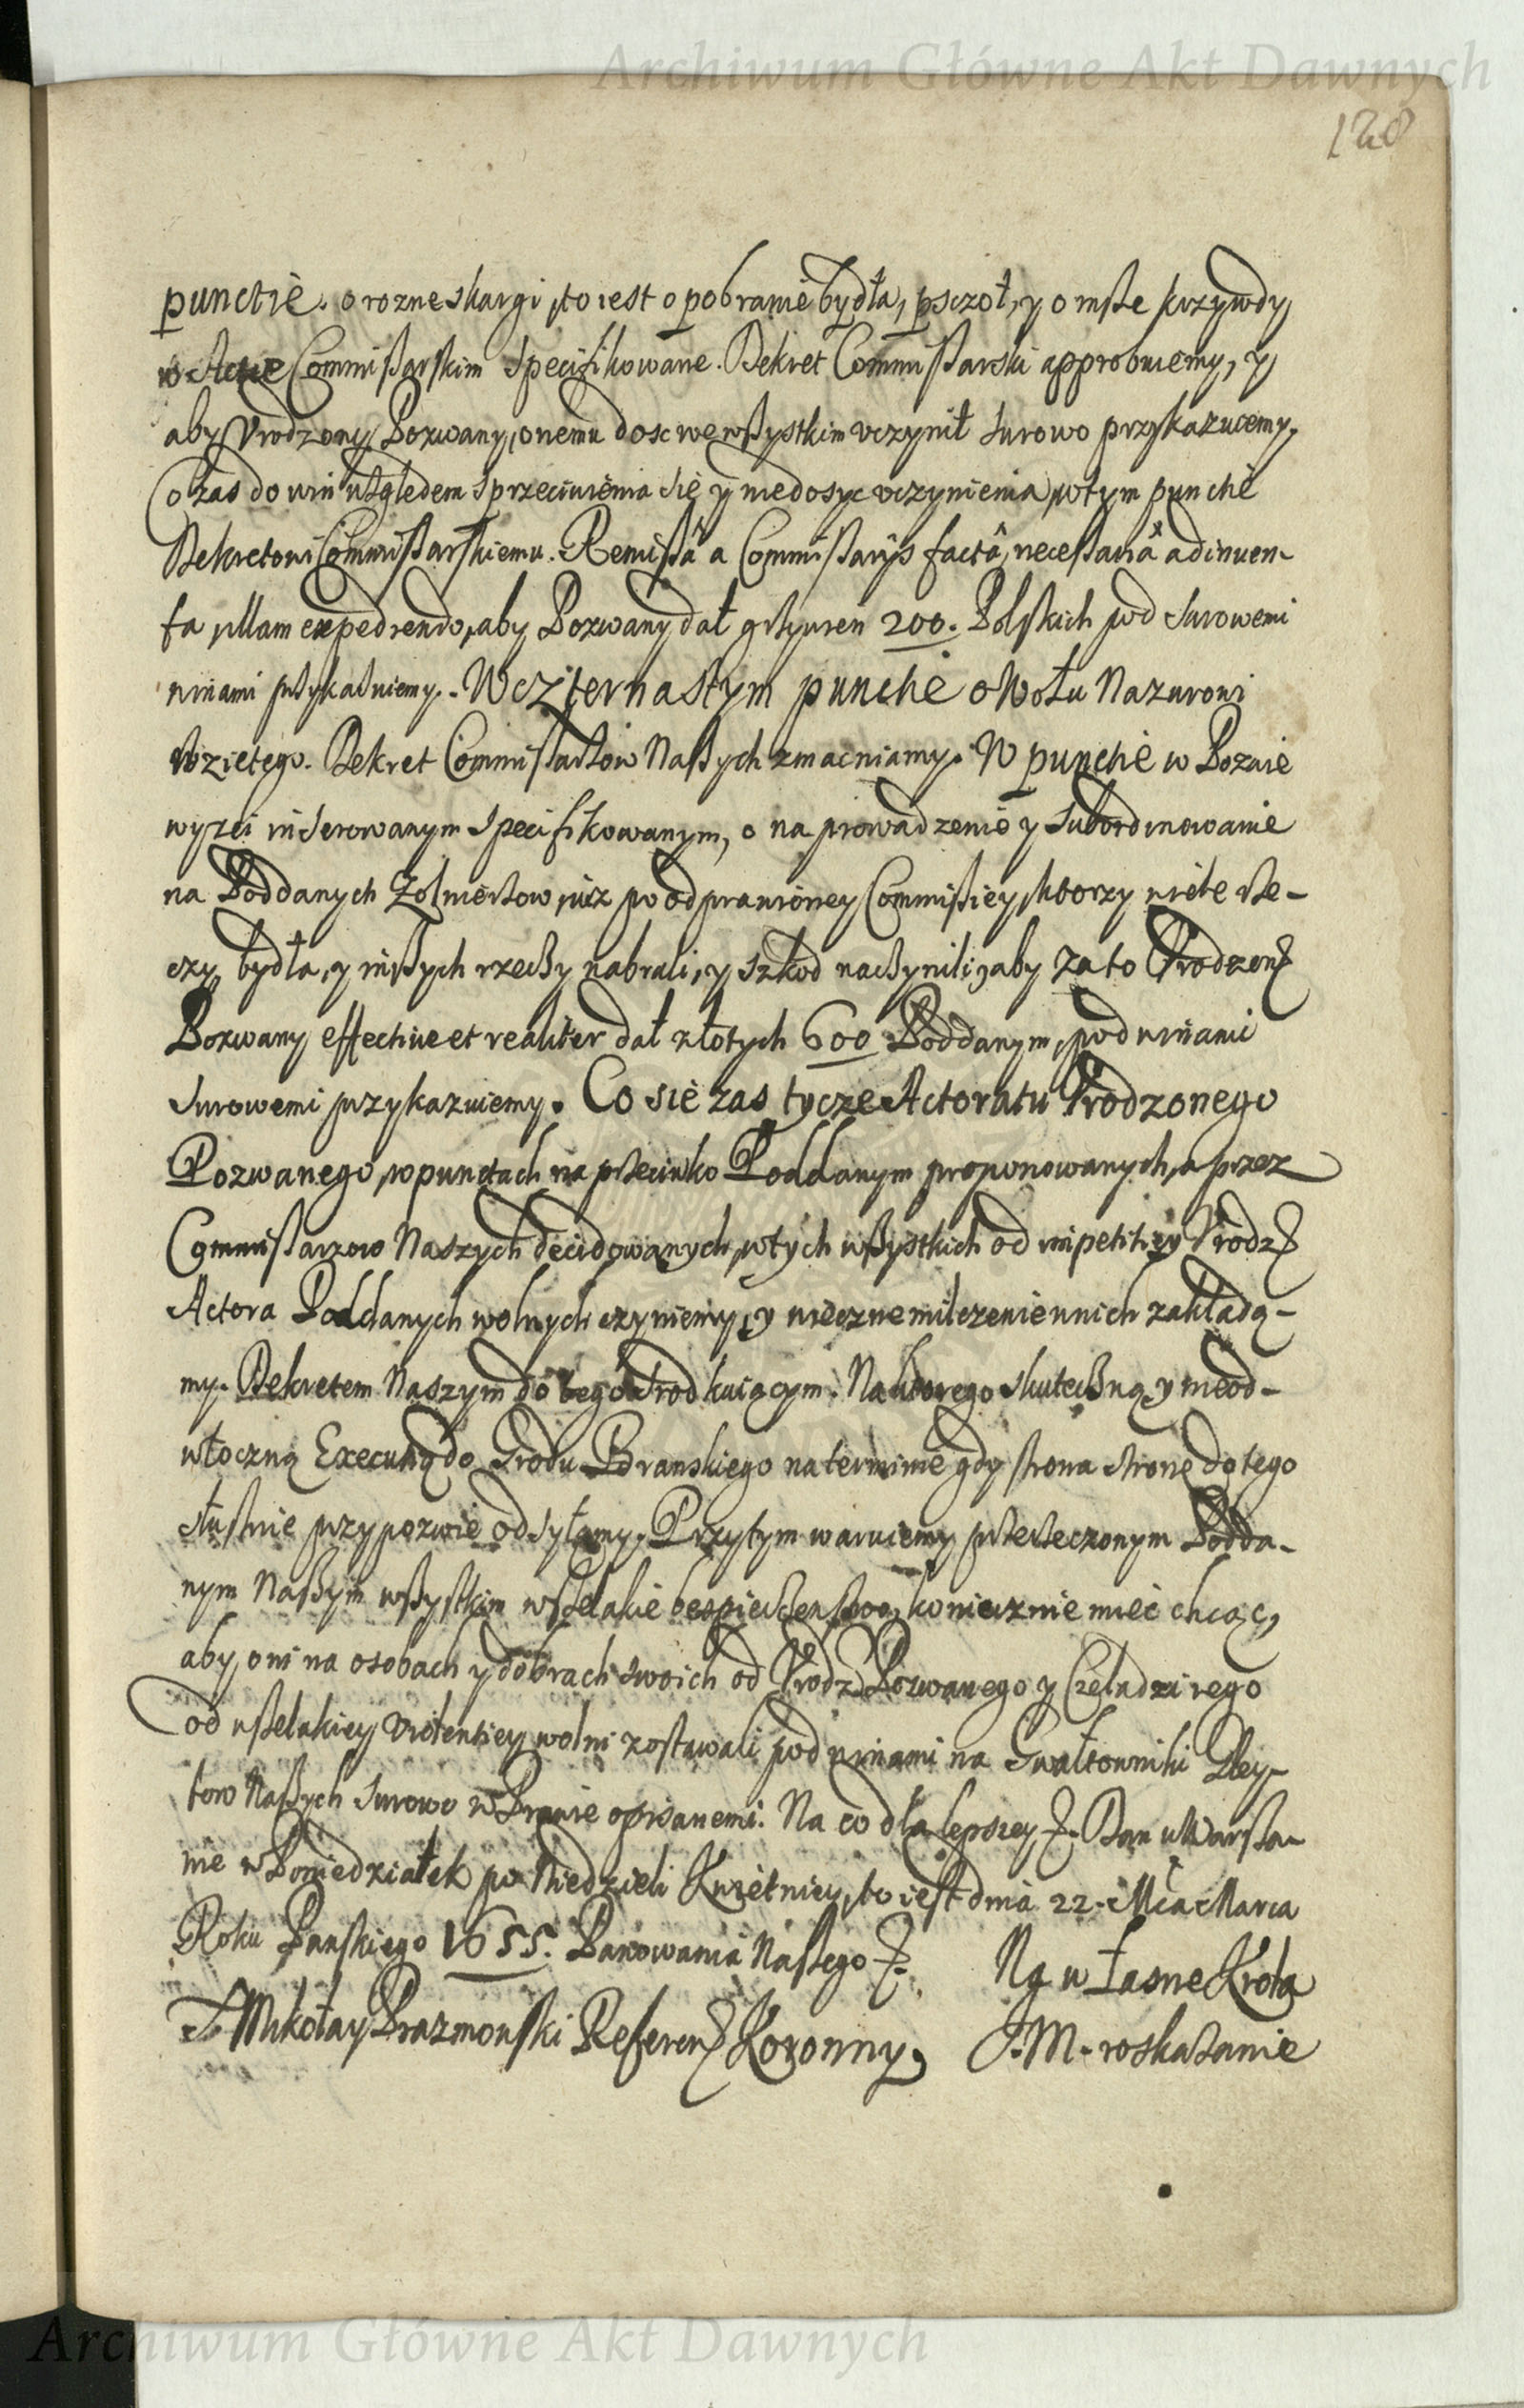 Archiwum Główne Akt Dawnych
128
punctie. o rozne skargi, to iest o pobranie bydła, psczoł, y o insze krzywdy
w Actie Commissarskim specifikowane. Dekret Commissarski approbuiemy, y
aby Vrodzony Pozwany, onemu dosc we wszystkim vczynił surowo przykazuiemy,
Co zas do win względem sprzeciwienia się y niedosyc vczynienia, w tym punctie
Dekretowi Commissarskiemu. Remissâ a Commissarijs factâ, necessariâ adinuen-
ta, illam expediendo, aby Pozwany dał grzywien 200. Polskich pod surowemi
winami przykazuiemy. W czternastym punctie o Wołu Nazurowi
wziętego. Dekret Commissarzow Naszych zmacniamy. W punctie w Pozwie
wyzei inserowanym specifikowanym, o naprowadzenie y subordinowanie
na Poddanych Zołnierzow, iuz po odprawioney Commissiey, ktorzy wiele rze-
czy, bydła, y inszych rzeczy nabrali, y szkod naczynili, aby za to Vrodzony
Pozwany effective et realiter dał złotych 600 Poddanym, pod winami
surowemi przykazuiemy. Co się zas tycze Actoratu Vrodzonego
Pozwanego, w punctach na przeciwko Poddanym proponowanych, a przez
Commissarzow Naszych decidowanych, w tych wszystkich od impetitiey Vrodz
Actora Poddanych wolnych czyniemy, y wieczne milczenie w nich zakłada-
my. Dekretem Naszym do tego srodkuiącym. Na ktorego skuteczną y nieod-
włoczną Execucią do Grodu Branskiego na terminie gdy strona stronę do tego
słusznie przypozwie odsyłamy. Przytym waruiemy przerzeczonym Podda-
nym Naszym wszystkim wszelakie bespieczenstwo, koniecznie miec chcąc,
aby oni na osobach y dobrach swoich od Vrodz Pozwanego y Czeladzi iego
od wszelakiey violentiey wolni zostawali pod winami na Gwałtowniki Gley-
tow Naszych surowo w Prawie opisanemi. Na co dla lepszey &. Dan w Warsza-
wie w Poniedziałek po Niedzieli Kwietniey, to iest dnia 22. Mca Marca
Roku Panskiego 1655. Panowania Naszego &.
Na własne Krola
J. M. roskazanie
Mikołay Prazmowski Referen Koronny,
Archiwum Główne Akt Dawnych